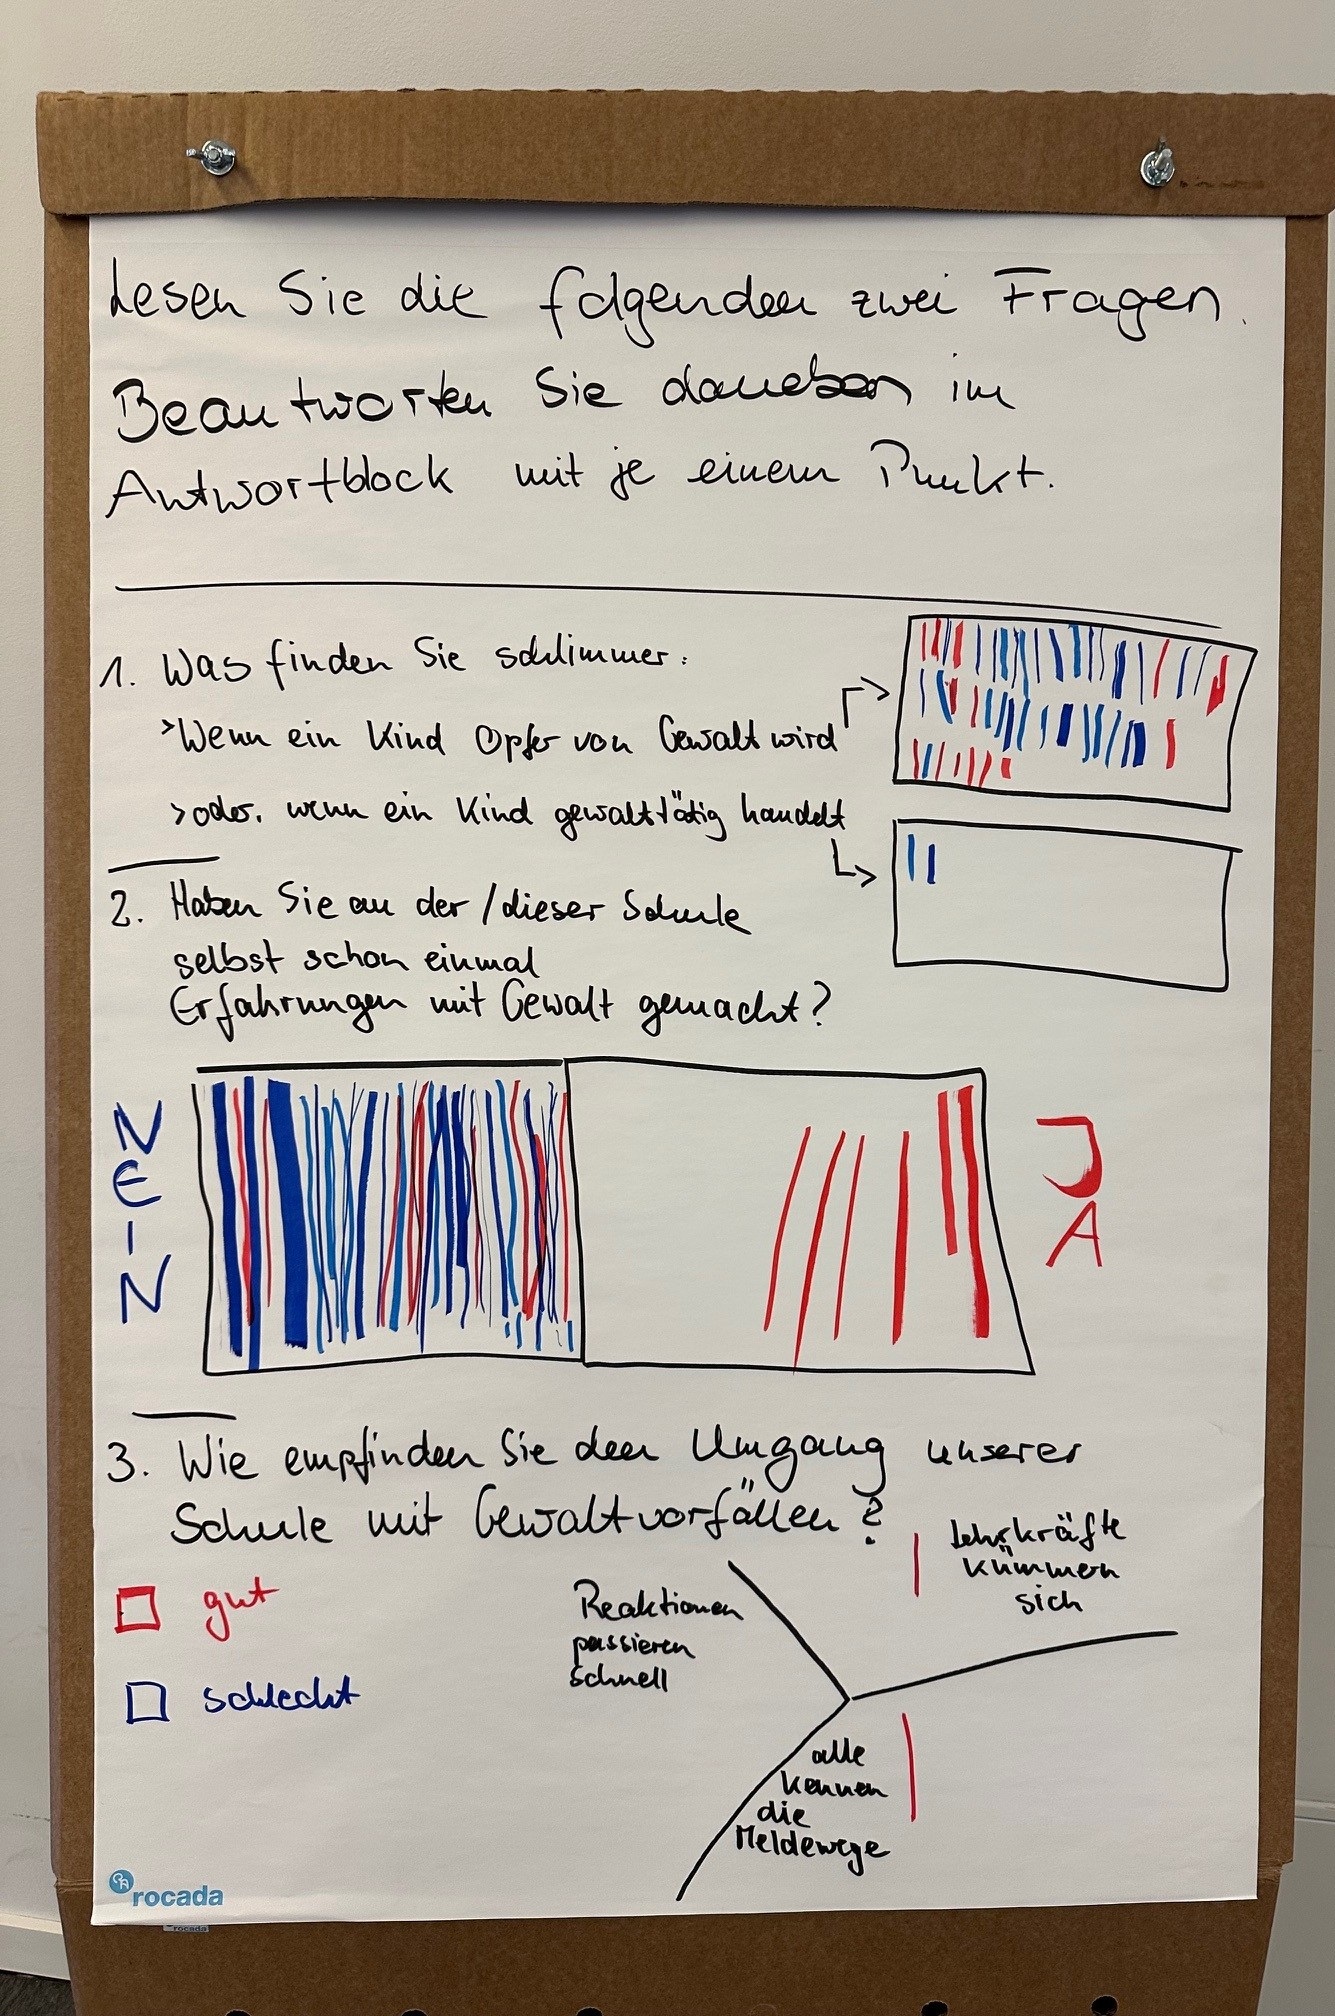 Lesen Sie die folgenden zwei Fragen.
Beantworten Sie daneben im
Antwortblock mit je einem Punkt.
1. Was finden Sie schlimmer:
>Wenn ein Kind Opfer von Gewalt wird
>oder, wenn ein Kind gewalttätig handelt
2. Haben Sie an der/dieser Schule
selbst schon einmal
Erfahrungen mit Gewalt gemacht?
NEIN
JA
3. Wie empfinden Sie den Umgang unserer
Schule mit Gewaltvorfällen?
gut
schlecht
Reaktionen
passieren
schnell
Lehrkräfte
kümmern
sich
alle
kennen
die
Meldewege
rocada
rocada